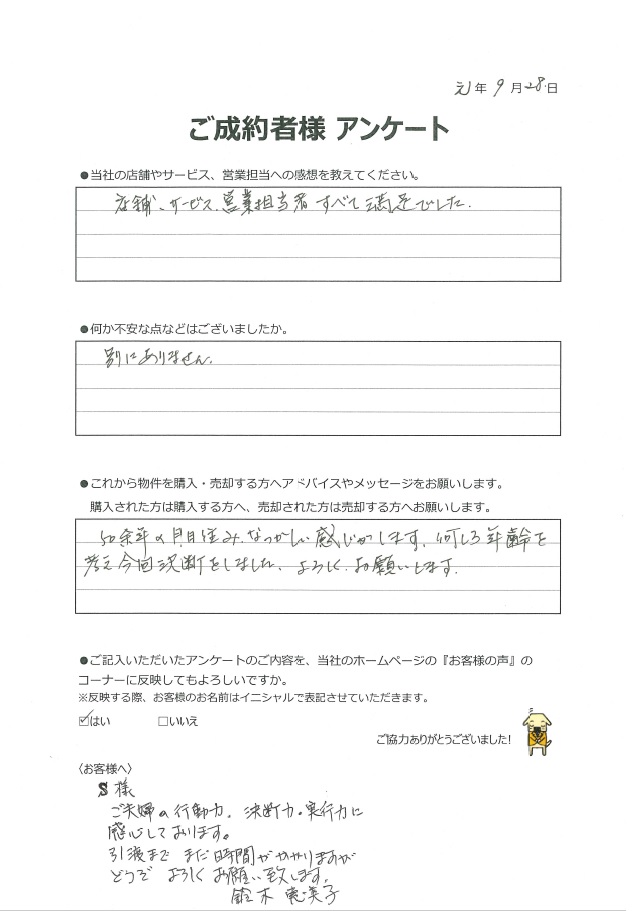 元年 9月28日
ご成約者様 アンケート
●当社の店舗やサービス、営業担当への感想を教えてください。
店舗、サービス、営業担当者すべて満足でした。
●何か不安な点などはございましたか。
別にありません。
●これから物件を購入・売却する方へアドバイスやメッセージをお願いします。
購入された方は購入する方へ、売却された方は売却する方へお願いします。
50余年の月日住み、なつかしい感じがします、何しろ年齢を
考え今回決断をしました、よろしくお願いします。
●ご記入いただいたアンケートのご内容を、当社のホームページの『お客様の声』の
コーナーに反映してもよろしいですか。
※反映する際、お客様のお名前はイニシャルで表記させていただきます。
☑はい □いいえ
ご協力ありがとうございました!
〈お客様へ〉
S様
ご夫婦の行動力、決断力・実行力に
感心しております。
引渡まで まだ時間がかかりますが
どうぞ よろしくお願い致します。
鈴木 恵美子